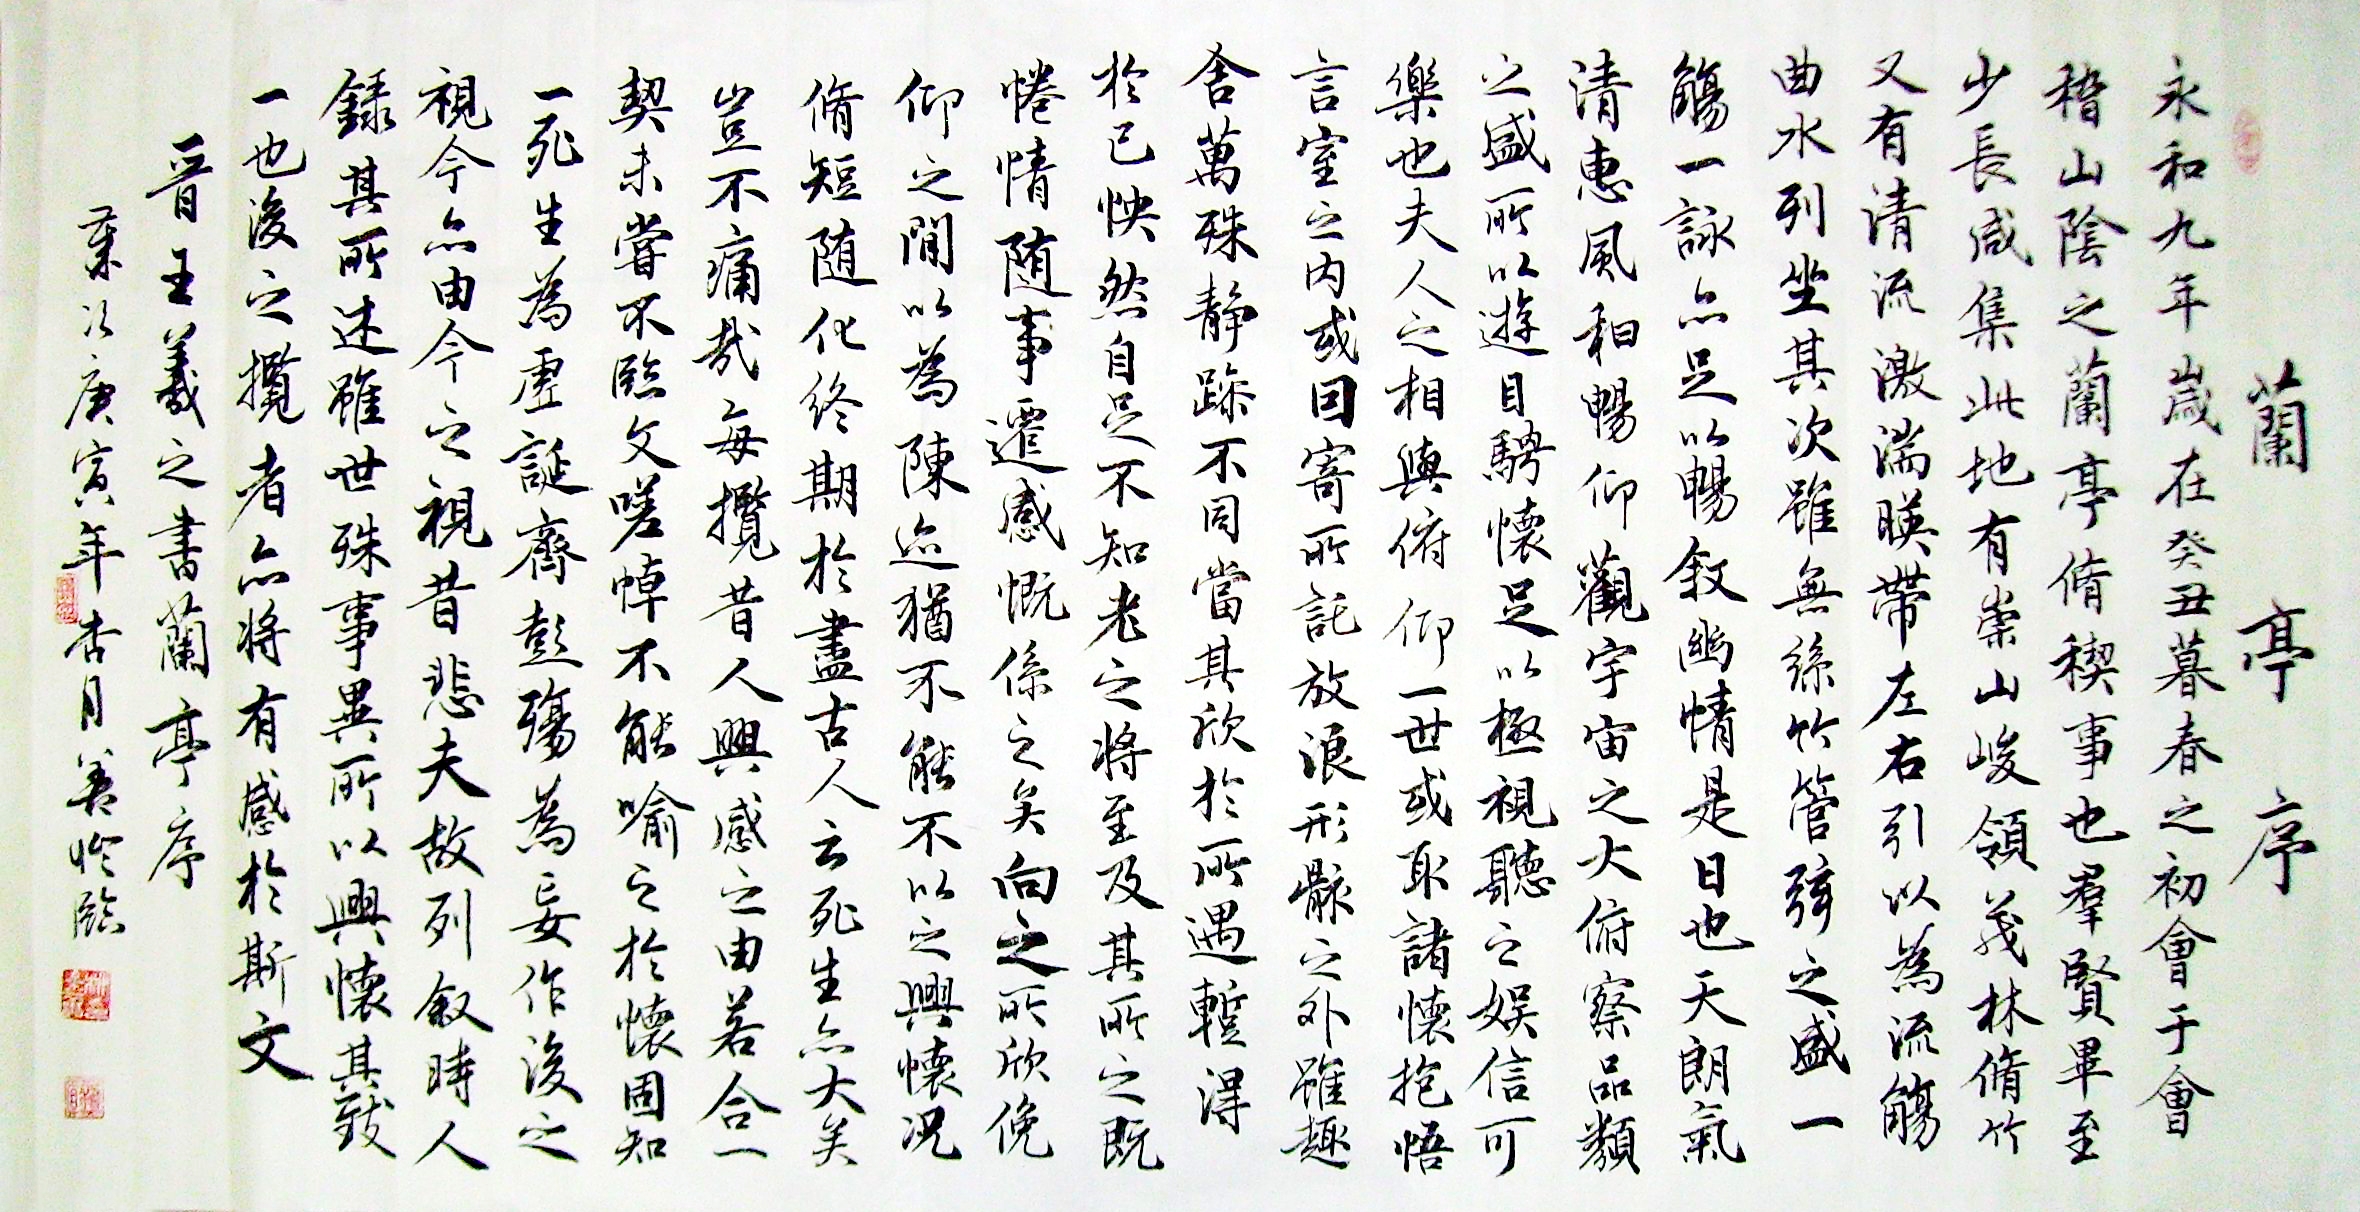 蘭亭序
永和九年歲在癸丑暮春之初會于會
稽山陰之蘭亭脩稧事也羣賢畢至
少長咸集此地有崇山峻領茂林脩竹
又有清流激湍暎帶左右引以為流觴
曲水列坐其次雖無絲竹管弦之盛一
觴一詠亦足以暢敘幽情是日也天朗氣
清惠風和暢仰觀宇宙之大俯察品類
之盛所以遊目騁懷足以極視聽之娛信可
樂也夫人之相與俯仰一世或取諸懷抱悟
言室之內或因寄所託放浪形骸之外雖趣
舍萬殊靜躁不同當其欣於所遇暫得
於己怏然自足不知老之將至及其所之既
惓情隨事遷感慨係之矣向之所欣俛
仰之閒以為陳迹猶不能不以之興懷況
脩短隨化終期於盡古人云死生亦大矣
豈不痛哉每攬昔人興感之由若合一
契未嘗不臨文嗟悼不能喻之於懷固知
一死生為虛誕齊彭殤為妄作後之
視今亦由今之視昔悲夫故列敘時人
錄其所述雖世殊事異所以興懷其致
一也後之攬者亦將有感於斯文
晉王羲之書蘭亭序
庚寅年杏月臨